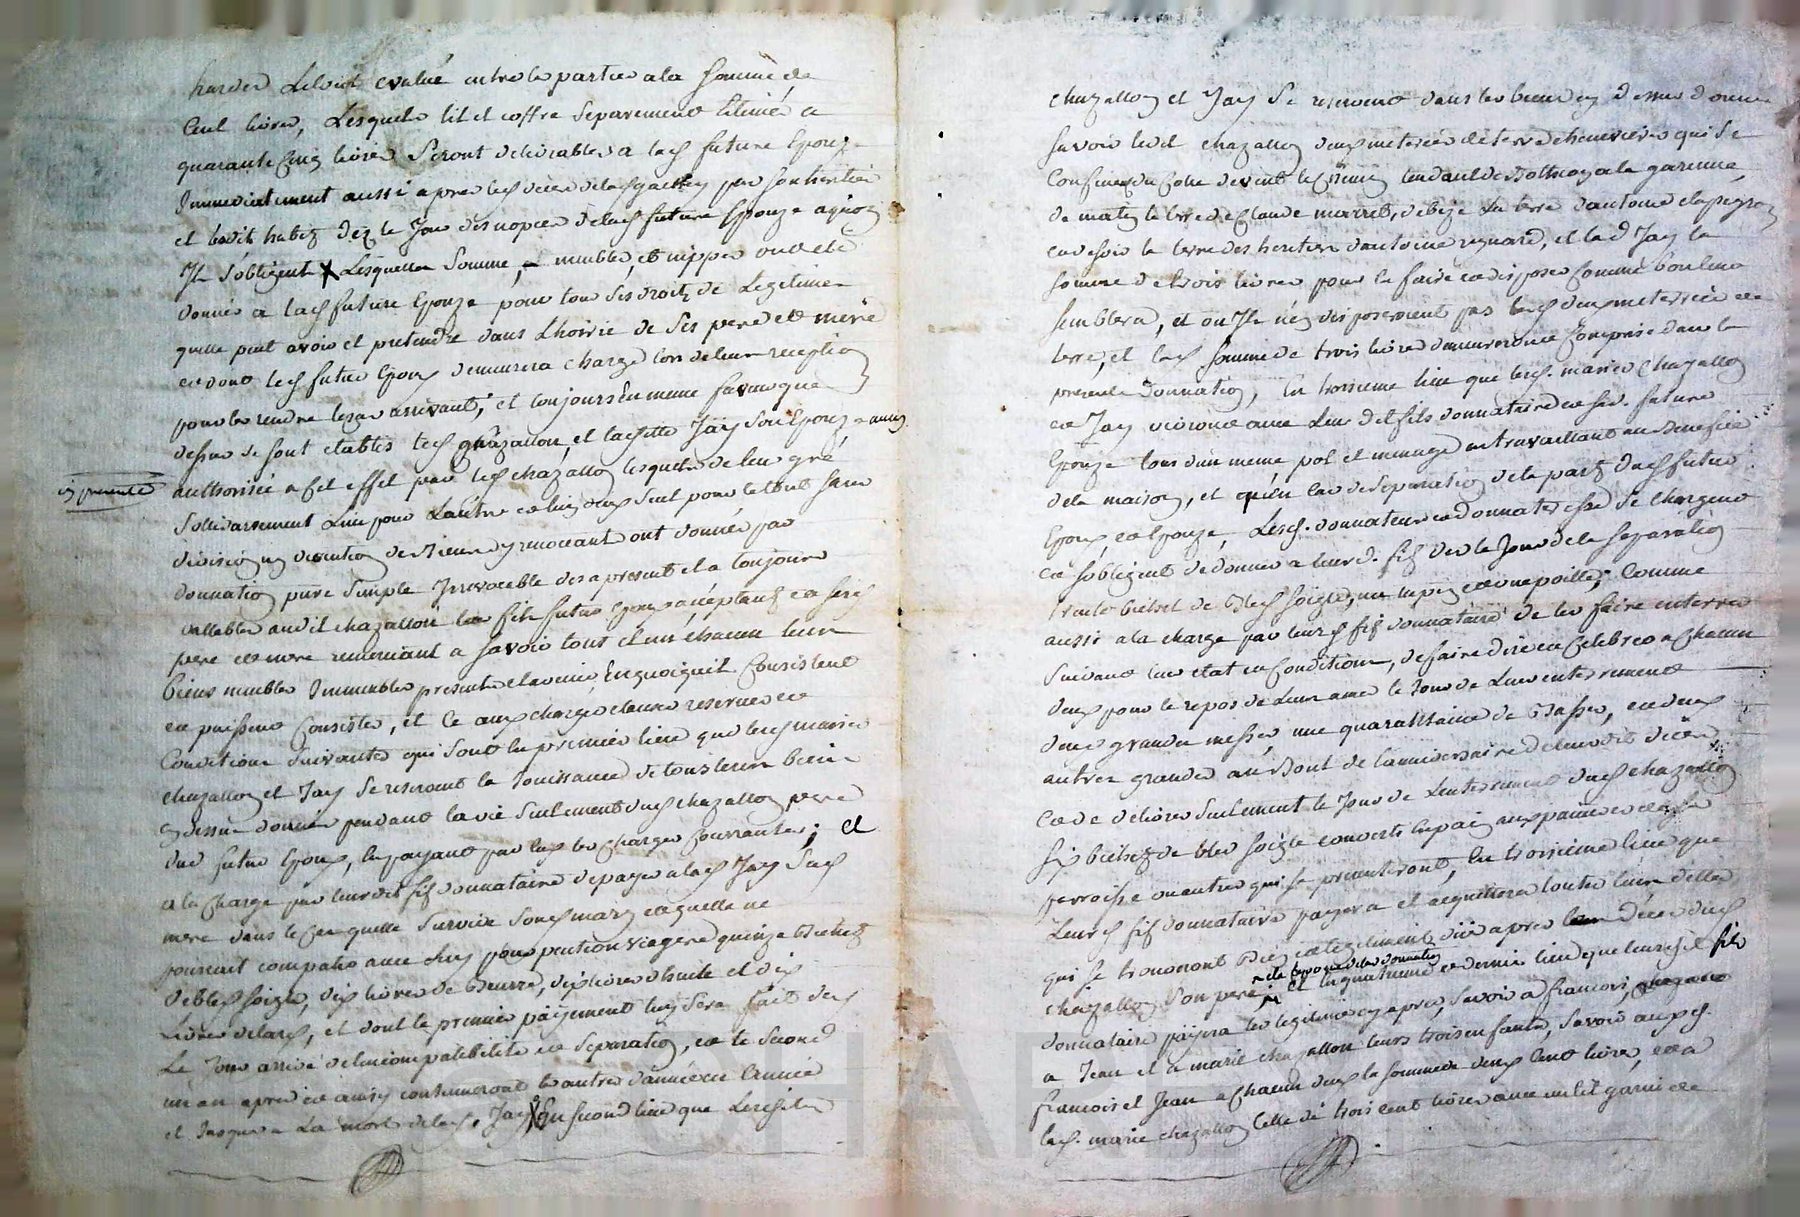 hardes Le tout evalué entre les parties a la somme de
Cent livres, Lesquels lit et coffre separement Estimés a
quarante Cinq livres Seront delivrables a lad future Epouze
Immediatement aussi apres led deces par son heritier
et lesdits habits dez le Jour des nopces de lad future Epouze ainsy
Ils s'obligent X Lesquelles Somme, meubles, et nippes ont été
donnés a lad future Epouze pour tous ses droits de Legitime
quelle peut avoir et pretendre dans L'hoirie de Ses pere et mere
et dont led futur Epoux demeurera chargé lors de leur reception
pour les rendre le cas arrivant, et toujours En meme faveur que
dessus se sont etablis led chazallon, et lad Jay son Epouze
icy presents
authorisée a Cet effet par led chazallon lesquels de leur gré
Sollidairement L'un pour L'autre et lun deux seul pour le tout sans
division ny discution de Biens y renoncant ont donnés par
donnation pure Simple Irrevocable des a present et a toujours
vallable audit chazallon leur fils futur Epoux acceptant et sesd
pere et mere remerciant a Savoir tous et un chacun leurs
biens meubles Immeubles presents et avenir, En quoi qu'il Consistent
et puissent Consister, et Ce aux charges clauses reserves et
Conditions Suivantes qui sont En premier lieu que lesd maries
chazallon et Jay Se reservent la Jouissance de tous leurs biens
cy dessus donnés pendant la vie Seulement dud chazallon pere
dud futur Epoux, En payant par lux les Charges Courrantes; et
a la Charge par leurdit fils donnataire de payer a lad Jay Sad
mere dans le Cas quelle Survive Sond mary et quelle ne
pourrait compatir avec luy pour pention viagere quinze Bichets
de bled soigle, dix livres de Beurre, dix livres d'huile et dix
Livres de lard, et dont le premier payement luy sera fait dez
Le Jour arrivé de lincompatibilité et Separation, et le Second
un an apres et ainsy continueront les autres d'année en Année
et Jusques a La mort de lad. Jay X En Second lieu que Lesd
chazallon et Jay Se reservent dans les biens cy dessus donnés
Savoir led chazallon deux meterées de terre qui se
Confinent
de matin la terre de Claude marret, de bize La terre d'antoine
et de soir la terre des heritiers d'antoine regnard, et lad Jay la
somme de trois livres pour En faire et disposer Comme bon leur
Semblera, et ou Ils n'en disposeroient pas lesd deux meterées de
terre, et lad somme de trois livres demeureront Comprise dans la
presente Donnation, En troisieme lieu que lesd. maries Chazallon
et Jay vivront avec Leur dit fils donnataire et sad. future
Epouze tous d'un meme pot et menage en travaillant au Benefice
de la maison, et qu'en Cas de Separation de la part dud futur
Epoux, et Epouze, Lesd. donnateur et donnatresse Se Chargent
et s'obligent de donner a leurd. fils dez le Jour de la Separation
trente bichet de Bled soigle, Comme
aussi a la charge par leurd fils donnataire de les faire enterrer
Suivant leur etat et Condition, de faire dire et Celebrer a Chacun
deux pour le repos de Leur ame le Jour de Leur enterrement
deux grandes messes, une quarantaine de Basses, et deux
autres grandes au Bout de l'anniversaire de leurdit déces
et de delivrer Seulement le Jour de L'enterrement dud chazallon
Six bichets de bled soigle convertis En pain aux pauvres de
perroisse ou autres qui se presenteront, En troisieme lieu que
Leurd fils donnataire payera et acquittera toutes leurs dettes
qui se trouveront Bien et legitiment duës apres Leur déces dud
chazallon Son pere; Et En quatrieme et dernier lieu que leurdit fils
donnataire payera les legitimes cy apres, Savoir a francois,
a Jean et a marie chazallon leurs trois enfants, Savoir auxd.
francois et Jean a Chacun deux la somme de deux Cent livres, et a
lad. marie chazallon Celle de trois cent livres avec un lit garni de